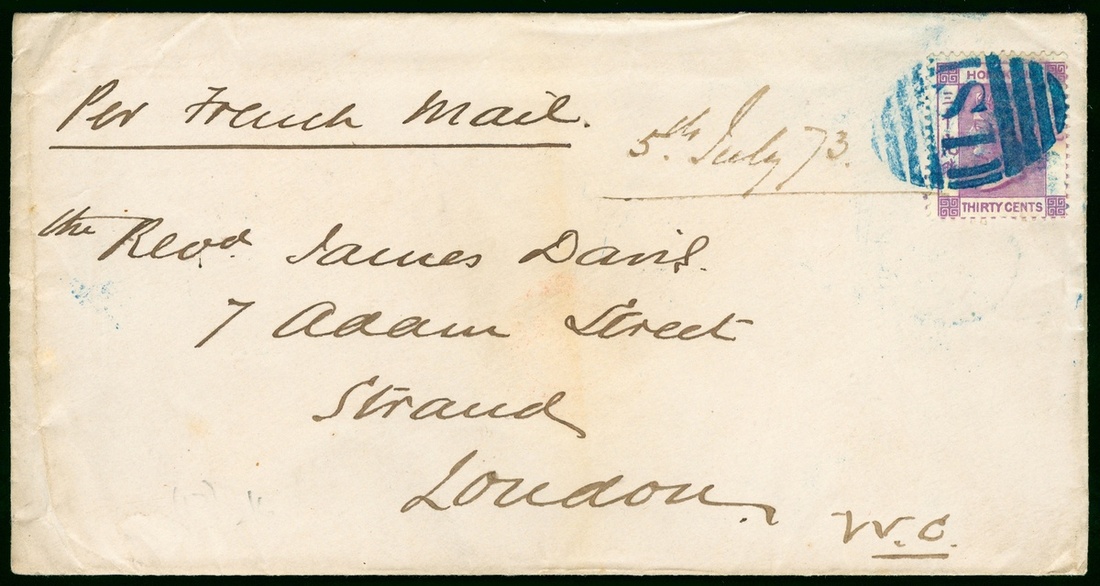 Per French Mail.
5th July 73.
HO
THIRTY CENTS
S1
the Revd. James Davis.
7 Adam Street
Strand
London.
W.C.